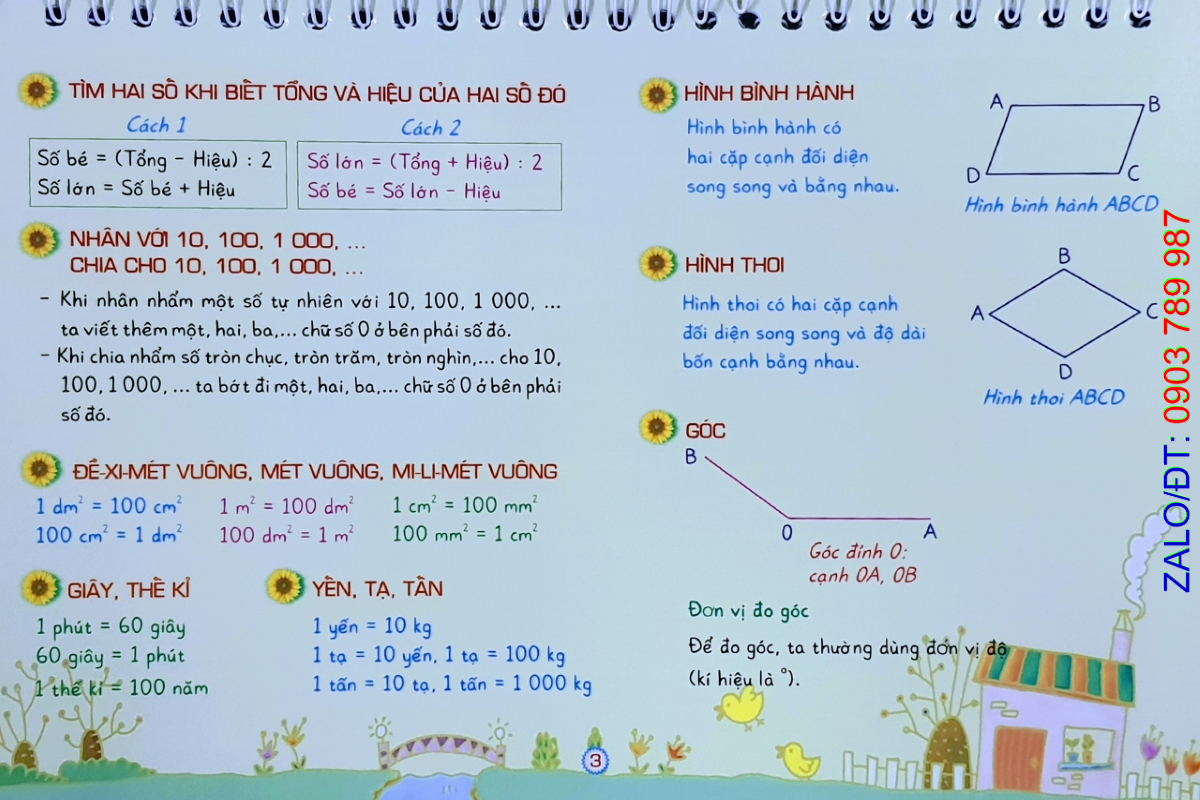 TÌM HAI SỐ KHI BIẾT TỔNG VÀ HIỆU CỦA HAI SỐ ĐÓ
Cách 1
Số bé = (Tổng - Hiệu) : 2
Số lớn = Số bé + Hiệu
Cách 2
Số lớn = (Tổng + Hiệu) : 2
Số bé = Số lớn - Hiệu
NHÂN VỚI 10, 100, 1 000, ...
CHIA CHO 10, 100, 1 000, ...
- Khi nhân nhẩm một số tự nhiên với 10, 100, 1 000, ...
ta viết thêm một, hai, ba,... chữ số 0 ở bên phải số đó.
- Khi chia nhẩm số tròn chục, tròn trăm, tròn nghìn,... cho 10,
100, 1 000, ... ta bớt đi một, hai, ba,... chữ số 0 ở bên phải
số đó.
ĐỀ-XI-MÉT VUÔNG, MÉT VUÔNG, MI-LI-MÉT VUÔNG
1 dm² = 100 cm² 1 m² = 100 dm² 1 cm² = 100 mm²
100 cm² = 1 dm² 100 dm² = 1 m² 100 mm² = 1 cm²
GIÂY, THẾ KỈ
1 phút = 60 giây
60 giây = 1 phút
1 thế kỉ = 100 năm
YẾN, TẠ, TẤN
1 yến = 10 kg
1 tạ = 10 yến, 1 tạ = 100 kg
1 tấn = 10 tạ, 1 tấn = 1 000 kg
HÌNH BÌNH HÀNH
Hình bình hành có
hai cặp cạnh đối diện
song song và bằng nhau.
A B
D C
Hình bình hành ABCD
HÌNH THOI
Hình thoi có hai cặp cạnh
đối diện song song và độ dài
bốn cạnh bằng nhau.
B
A C
D
Hình thoi ABCD
GÓC
B
O A
Góc đỉnh O:
cạnh OA, OB
Đơn vị đo góc
Để đo góc, ta thường dùng đơn vị độ
(kí hiệu là °).
3
ZALO/ĐT: 0903 789 987